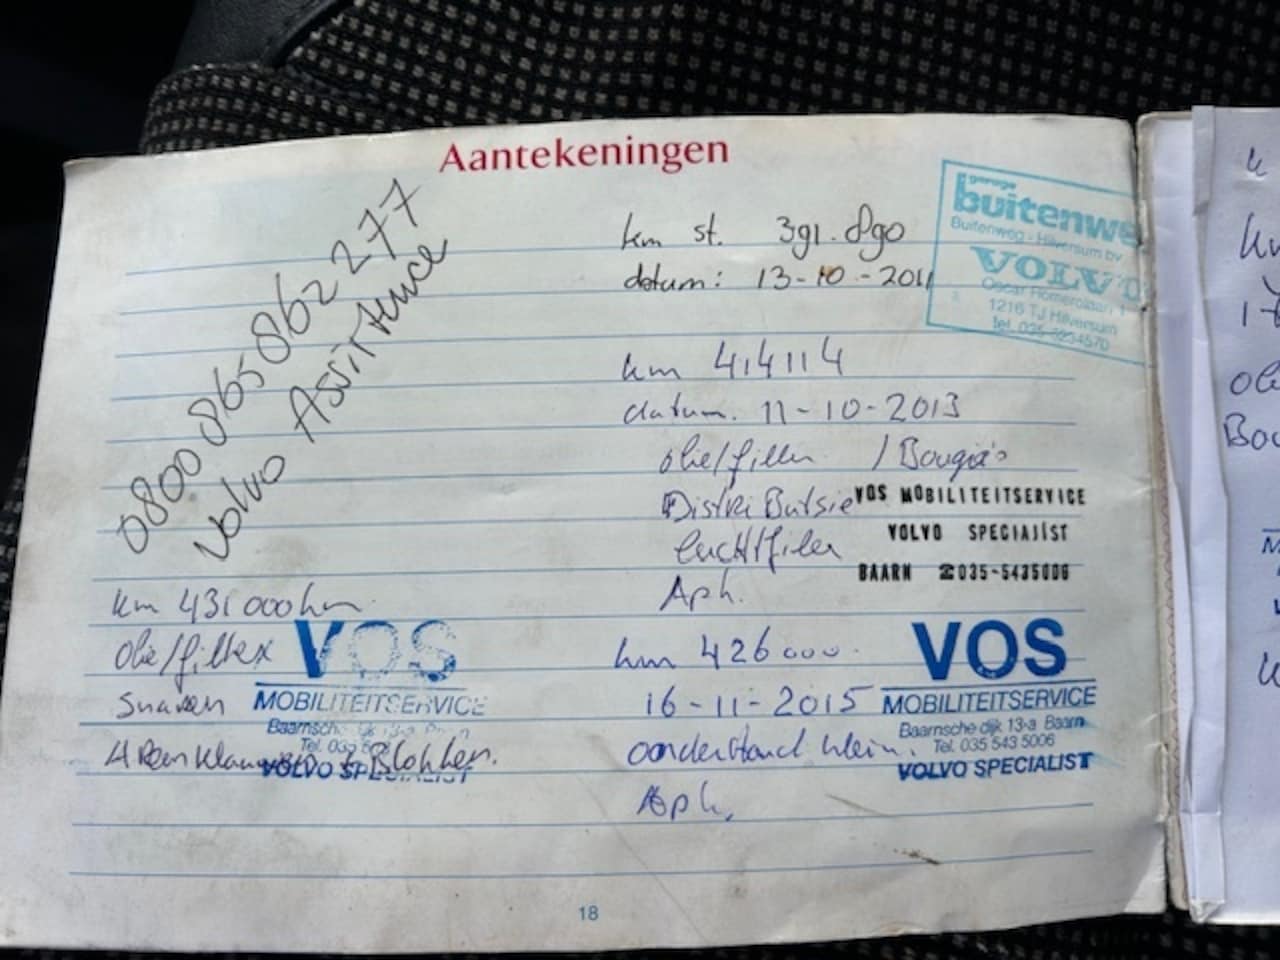 Aantekeningen
0800 0865 0862 277
Volvo Assistence
km st. 391.890
datum: 13-10-2011
garage
buitenwe
Buitenweg - Hilversum bv
VOLVO
Oscar Romerolaan 1
1216 TJ Hilversum
tel. 035-6234570
km 414114
datum. 11-10-2013
olie/filter / Bougia's
Distri Butsie
luchtfilter
Aph.
VOS MOBILITEITSERVICE
VOLVO SPECIALIST
BAARN 035-5435006
km 431000 km
olie/filter
Snaren
4 Remklauwen + Blokken.
VOS
MOBILITEITSERVICE
Baarnsche
Tel. 035
VOLVO SPECIALIST
km 426000.
16-11-2015
onderhoud klein.
Aph.
VOS
MOBILITEITSERVICE
Baarnsche dijk 13-a Baarn
Tel. 035 543 5006
VOLVO SPECIALIST
18